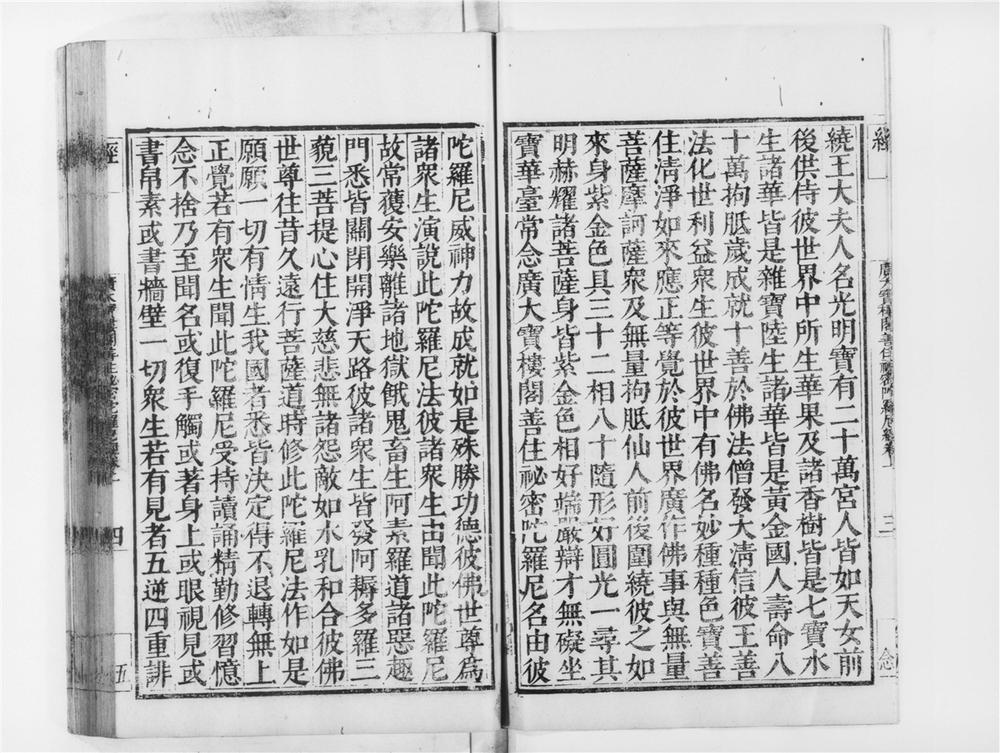 經
廣大寶樓閣善住祕密陀羅尼經卷上
三
念
繞王大夫人名光明寶有二十萬宮人皆如天女前
後供侍彼世界中所生華果及諸香樹皆是七寶水
生諸華皆是雜寶陸生諸華皆是黃金國人壽命八
十萬拘胝歲成就十善於佛法僧發大淸信彼王善
法化世利益衆生彼世界中有佛名妙種種色寶善
住淸淨如來應正等覺於彼世界廣作佛事與無量
菩薩摩訶薩衆及無量拘胝仙人前後圍繞彼之如
來身紫金色具三十二相八十隨形好圓光一尋其
明赫耀諸菩薩身皆紫金色相好端嚴辯才無礙坐
寶華臺常念廣大寶樓閣善住祕密陀羅尼名由彼
陀羅尼威神力故成就如是殊勝功德彼佛世尊爲
諸衆生演說此陀羅尼法彼諸衆生由聞此陀羅尼
故常獲安樂離諸地獄餓鬼畜生阿素羅道諸惡趣
門悉皆關閉開淨天路彼諸衆生皆發阿耨多羅三
藐三菩提心住大慈悲無諸怨敵如水乳和合彼佛
世尊往昔久遠行菩薩道時修此陀羅尼法作如是
願願一切有情生我國者悉皆決定得不退轉無上
正覺若有衆生聞此陀羅尼受持讀誦精勤修習憶
念不捨乃至聞名或復手觸或著身上或眼視見或
書帛素或書牆壁一切衆生若有見者五逆四重誹
經
四
五